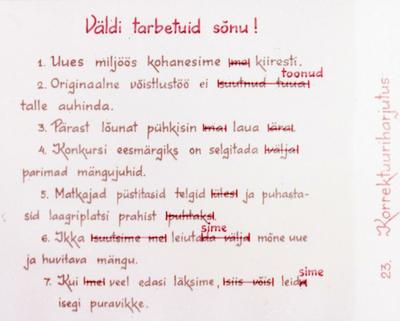 Väldi tarbetuid sõnu!
1. Uues miljöös kohanesime me kiiresti.
toonud
2. Originaalne võistlustöö ei suutnud tuua
talle auhinda.
3. Pärast lõunat pühkisin ma laua ära.
4. Konkursi eesmärgiks on selgitada välja
parimad mängujuhid.
5. Matkajad püstitasid telgid üles ja puhasta-
sid laagriplatsi prahist puhtaks.
sime
6. Ikka suutsime me leiutada välja mõne uue
ja huvitava mängu.
sime
7. Kui me veel edasi läksime, siis võis leida
isegi puravikke.
23. Korrektuuriharjutus